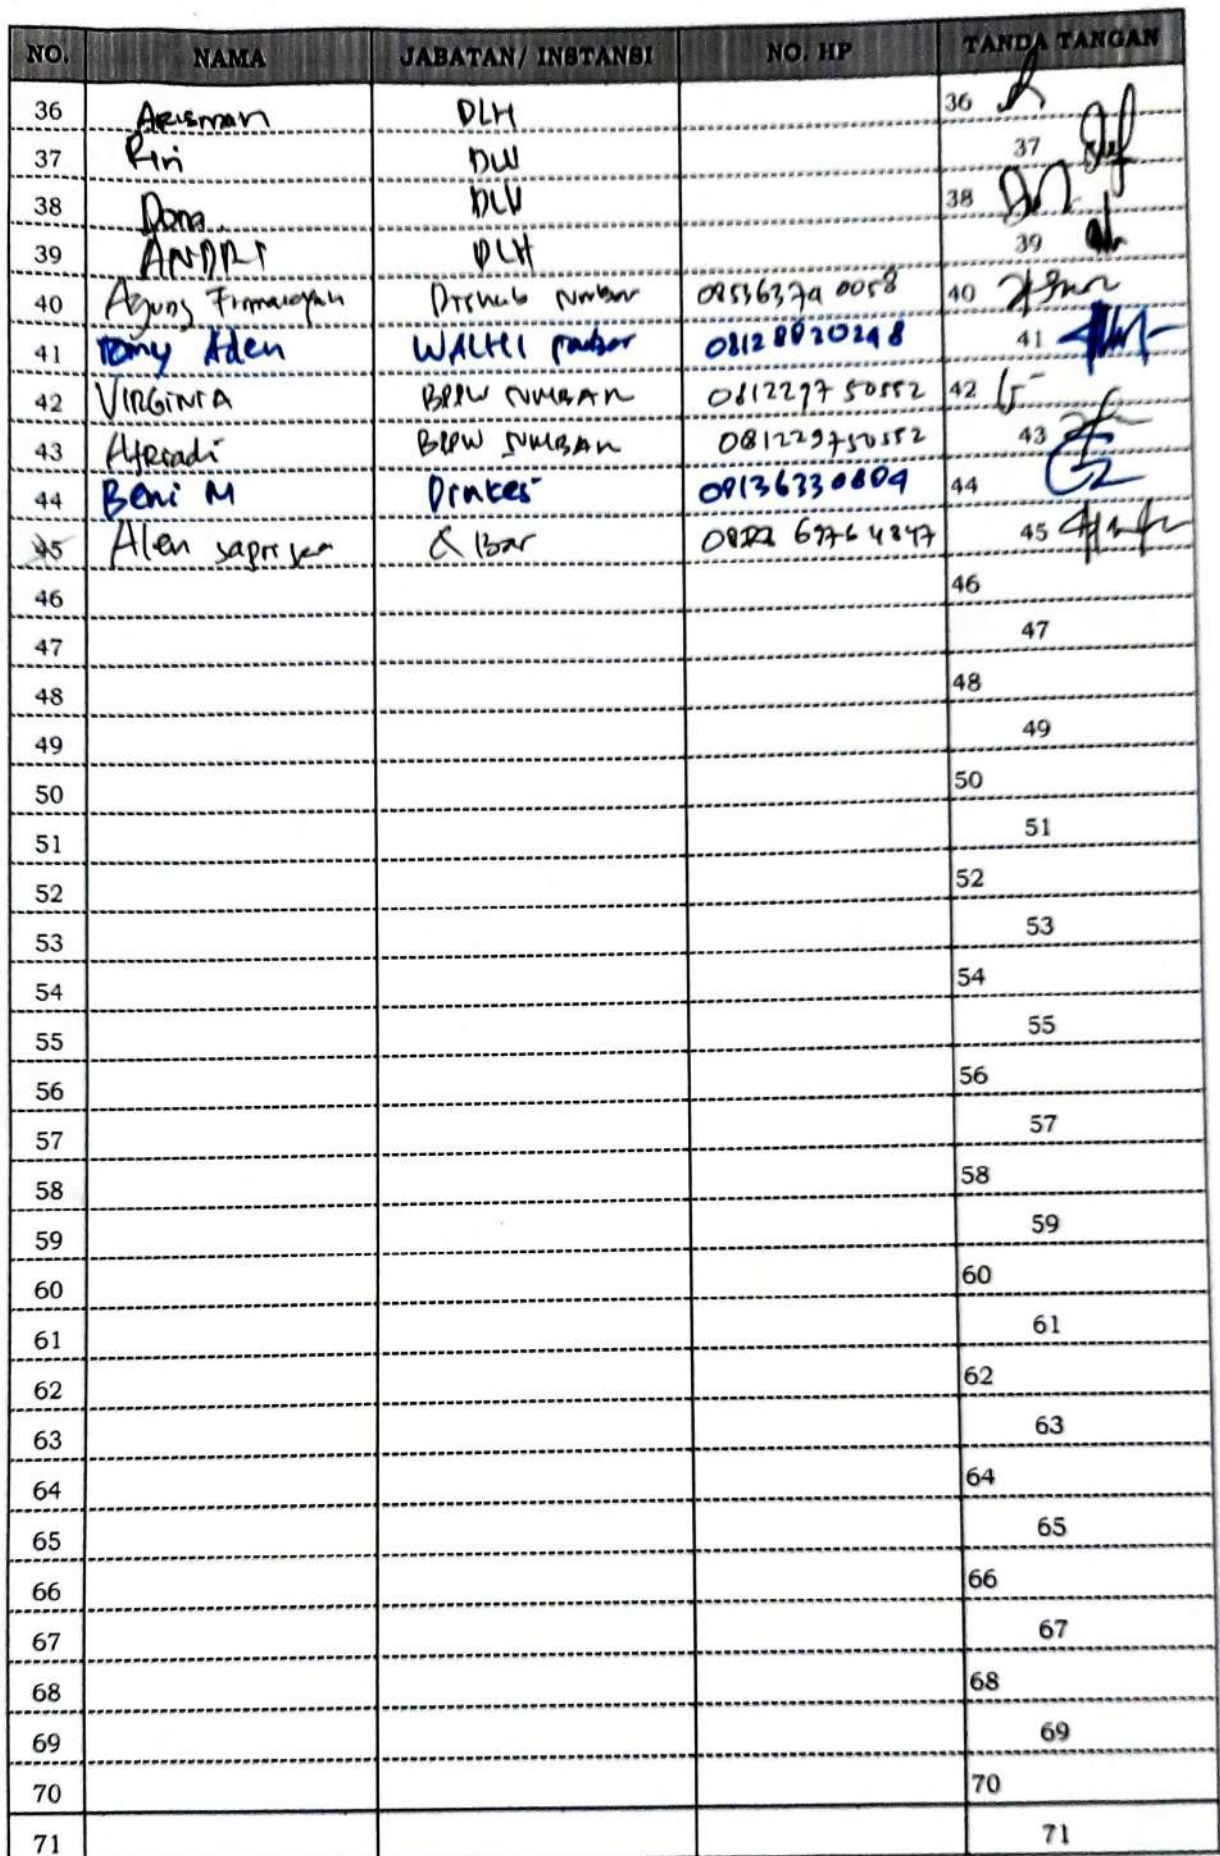 NO. NAMA JABATAN/ INSTANSI NO. HP TANDA TANGAN
36 Arisman DLH 36
37 Riri DLH 37
38 Dona DLH 38
39 ANDRI DLH 39
40 Agung Firmansyah Dishub Sumbar 40
41 Tomy Aden WALHI Sumbar 08128820248 41
42 VIRGINIA BPPW SUMBAR 081229750552 42
43 Afriadi BPPW SUMBAR 081229750552 43
44 Beni M Dinkes 44
45 Alen 45
46 46
47 47
48 48
49 49
50 50
51 51
52 52
53 53
54 54
55 55
56 56
57 57
58 58
59 59
60 60
61 61
62 62
63 63
64 64
65 65
66 66
67 67
68 68
69 69
70 70
71 71